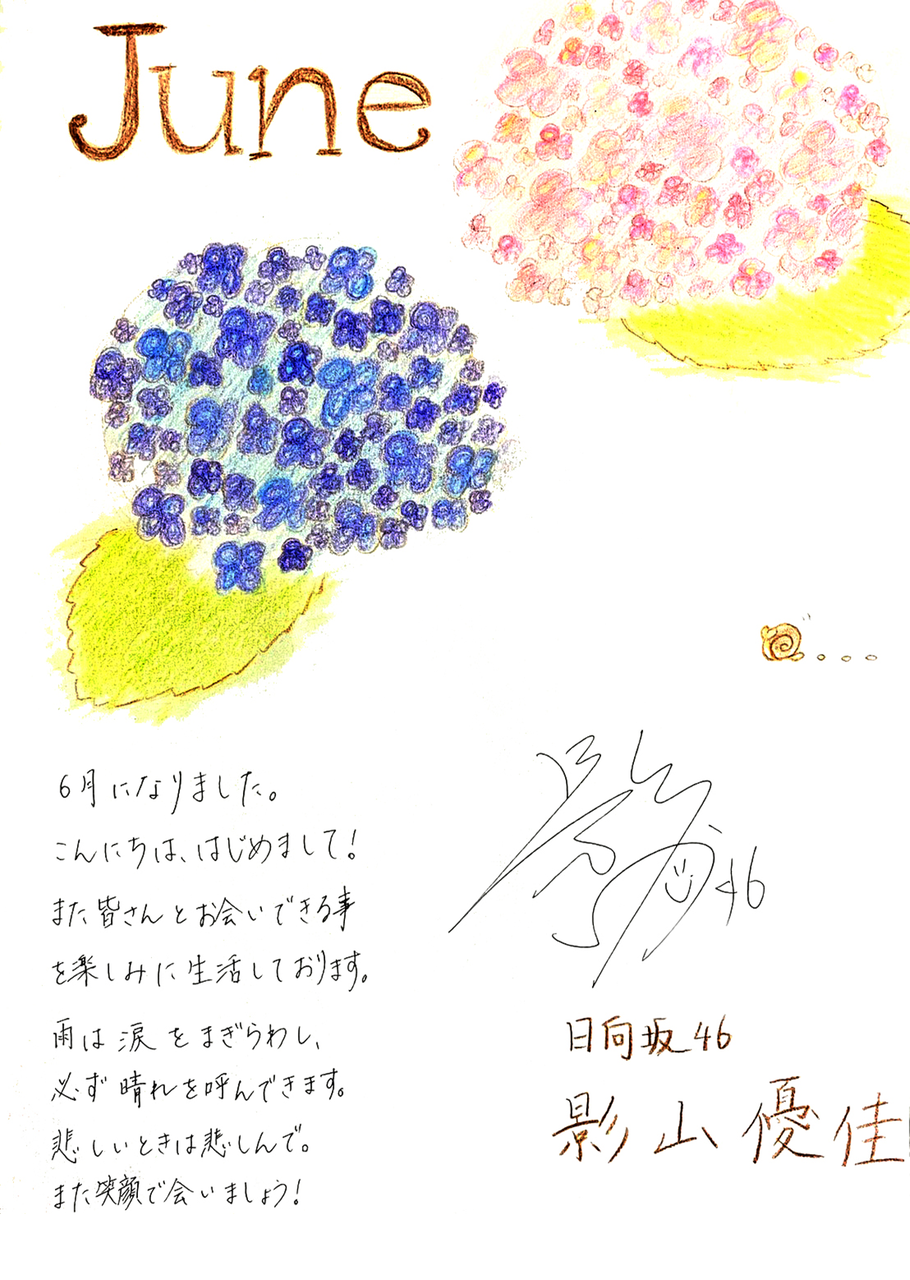 June
6月になりました。
こんにちは、はじめまして！
また皆さんとお会いできる事
を楽しみに生活しております。
雨は涙をまぎらわし、
必ず晴れを呼んできます。
悲しいときは悲しんで。
また笑顔で会いましょう！
46
日向坂46
影山優佳